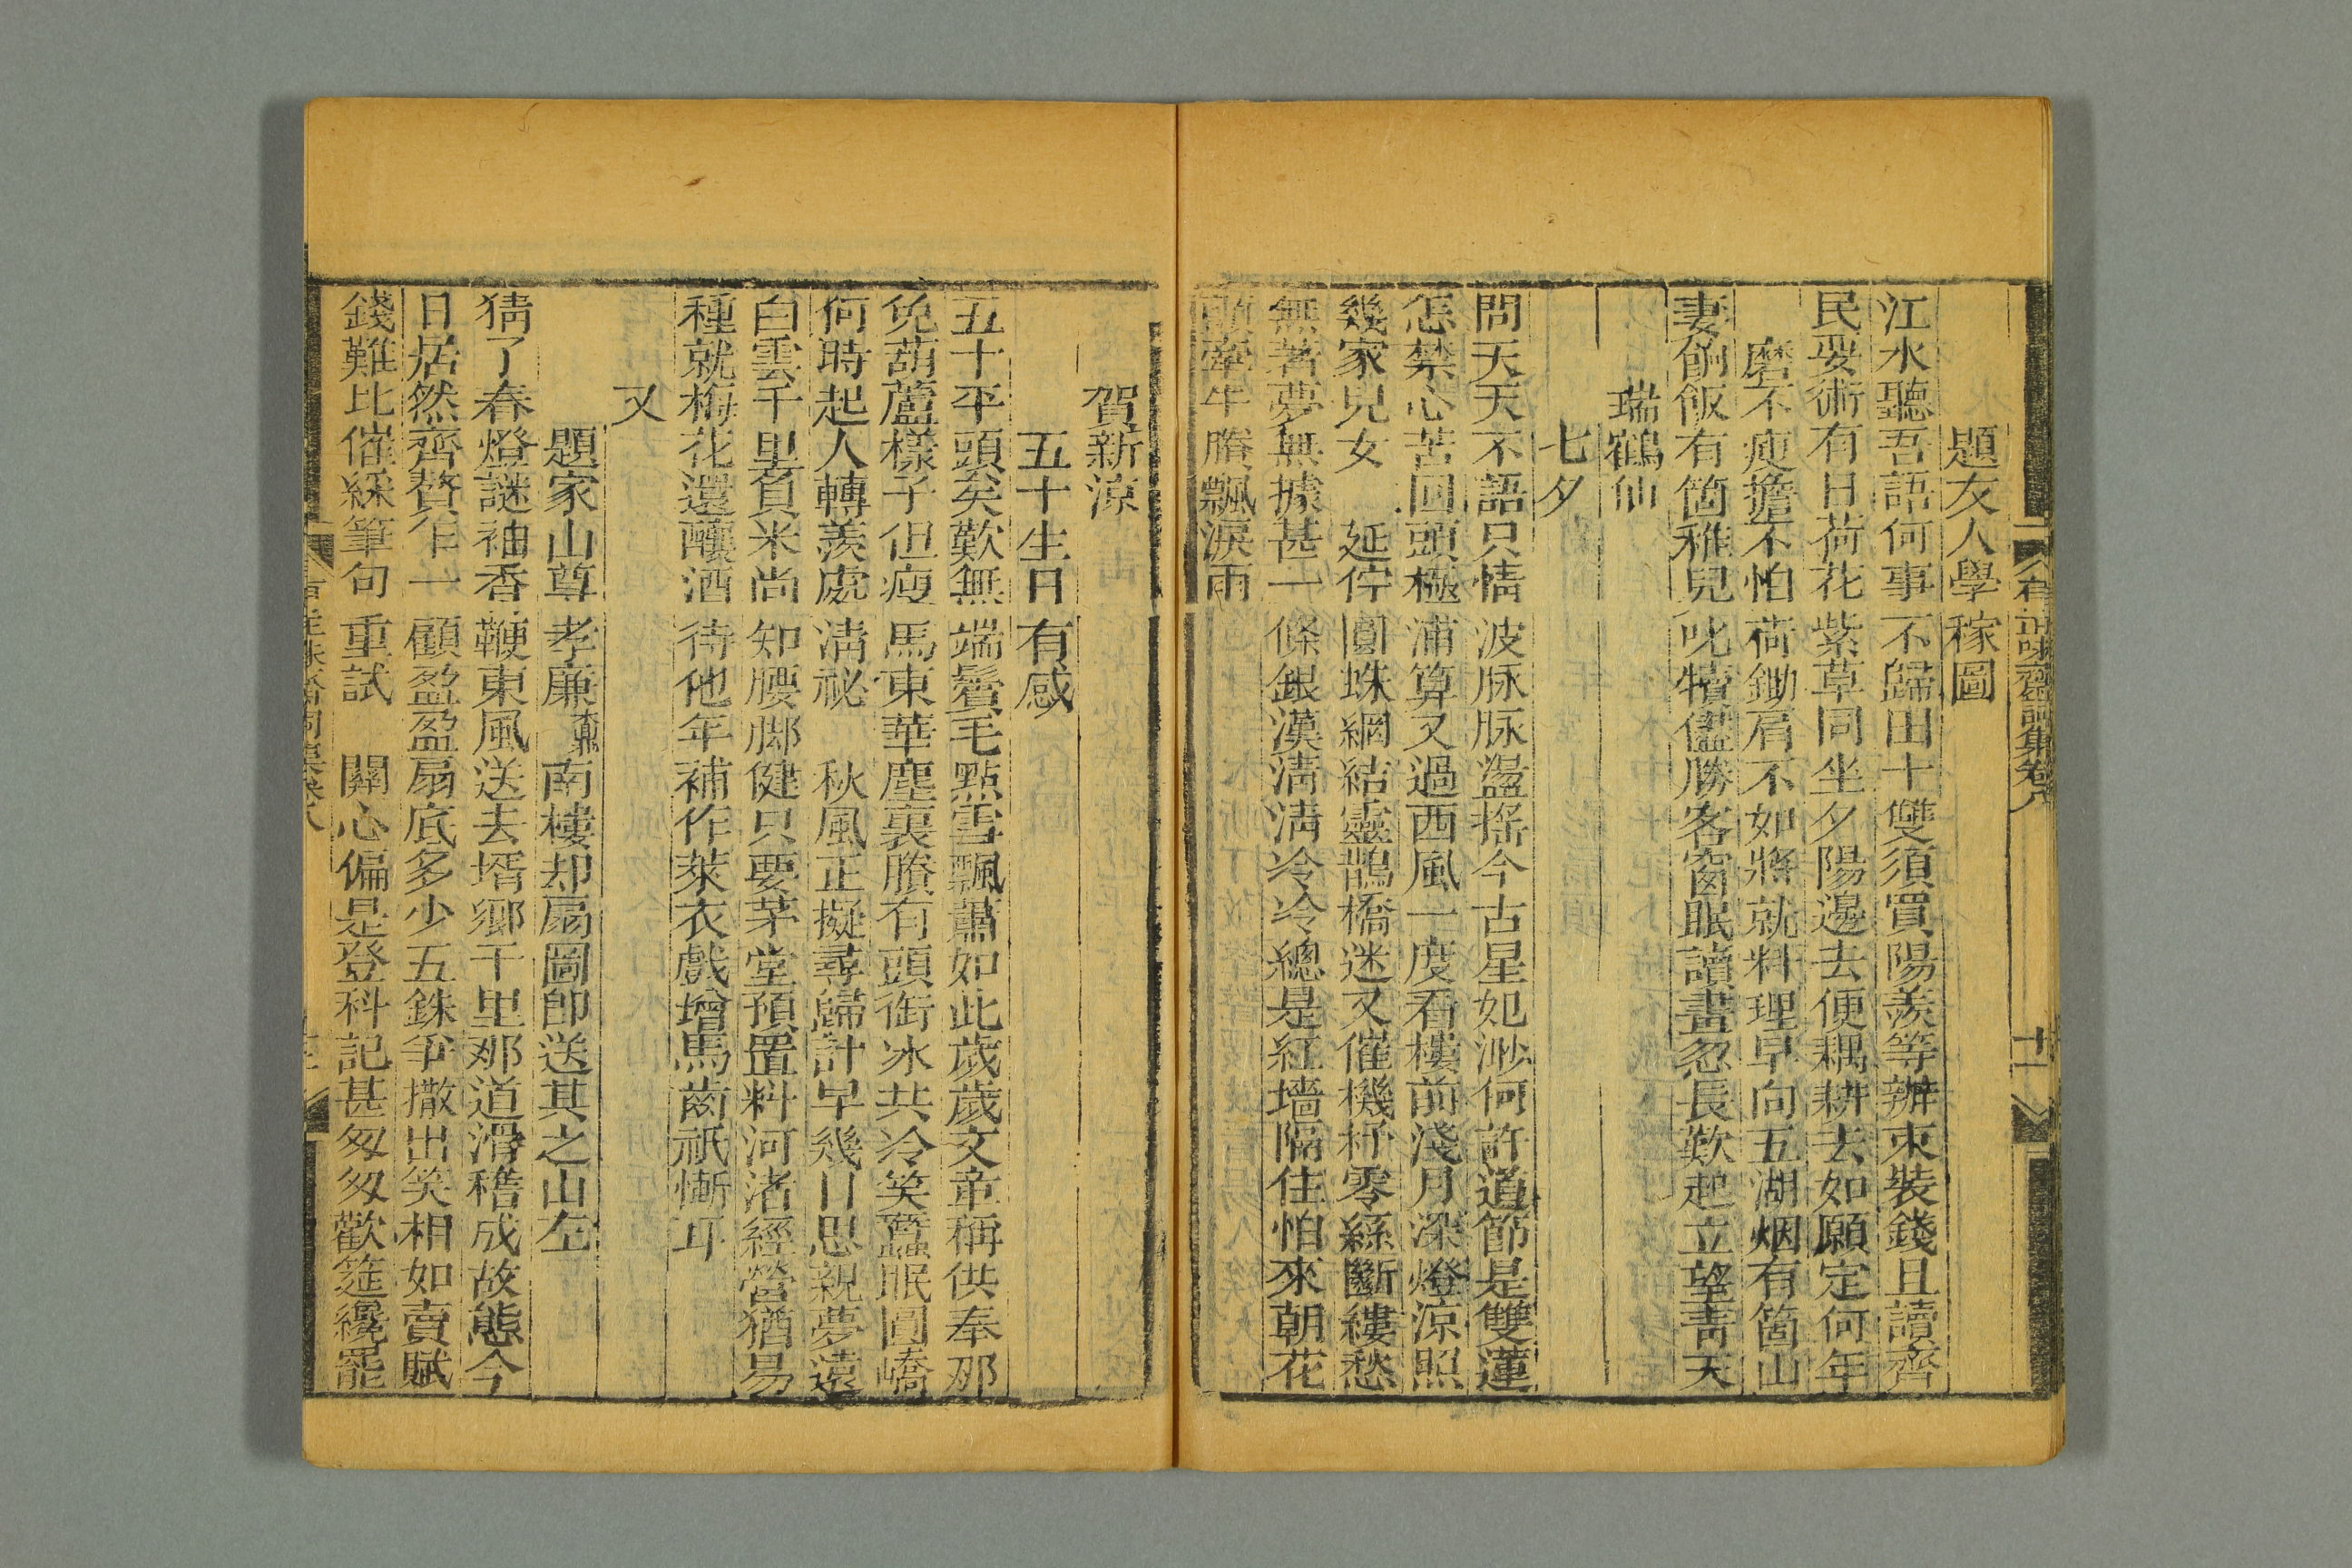 題友人學稼圖
江水聽吾語何事不歸田十雙須買陽羨等辦束裝錢且讀齊
民要術有日荷花紫草同坐夕陽邊去便耦耕去如願定何年
磨不瘦擔不怕荷鋤肩不如將就料理早向五湖烟有箇山
妻餉飯有箇稚兒叱犢儘勝客窗眠讀畫忽長歎起立望靑天
瑞鶴仙
七夕
問天天不語只情波脉脉盪搖今古星妃渺何許道節是雙蓮
怎禁心苦回頭極浦算又過西風一度看樓前淺月深燈涼照
幾家兒女 延佇圓蛛網結靈鵲橋迷又催機杼零絲斷縷愁
無著夢無據甚一條銀漢淸淸冷冷總是紅墻隔住怕來朝花
頭牽牛賸飄淚雨
有正味齋詞集卷八
十一
賀新涼
五十生日有感
五十平頭矣歎無端鬢毛點雪飄蕭如此歲歲文章稱供奉那
免葫蘆樣子但瘦馬東華塵裏賸有頭銜冰共冷笑蠶眠圓嶠
何時起人轉羨處淸祕 秋風正擬尋歸計早幾日思親夢遠
白雲千里負米尚知腰腳健只要茅堂預置料河渚經營猶易
種就梅花還釀酒待他年補作萊衣戲增馬齒祇慚耳
又
題家山尊孝廉鼒南樓却扇圖卽送其之山左
猜了春燈謎袖香鞭東風送去壻鄉千里那道滑稽成故態今
日居然齊贅乍一顧盈盈扇底多少五銖爭撒出笑相如賣賦
錢難比催綵筆句重試 關心偏是登科記甚匆匆歡筵纔罷